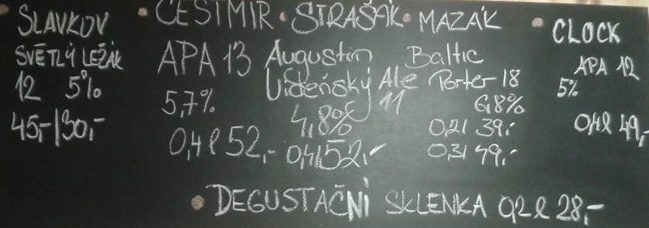 SLAVKOV
SVĚTLÝ LEŽÁK
12 5%
45,-/30,-
ČESTMÍR
APA 13
5,7%
0,4l 52,-
STRAŠÁK
Augustin
Vídeňský Ale
11
4,8%
0,4l 52,-
MAZÁK
Baltic
Porter 18
6,8%
0,2l 39,-
0,3l 49,-
CLOCK
APA 12
5%
0,4l 49,-
DEGUSTAČNÍ SKLENKA 0,2l 28,-